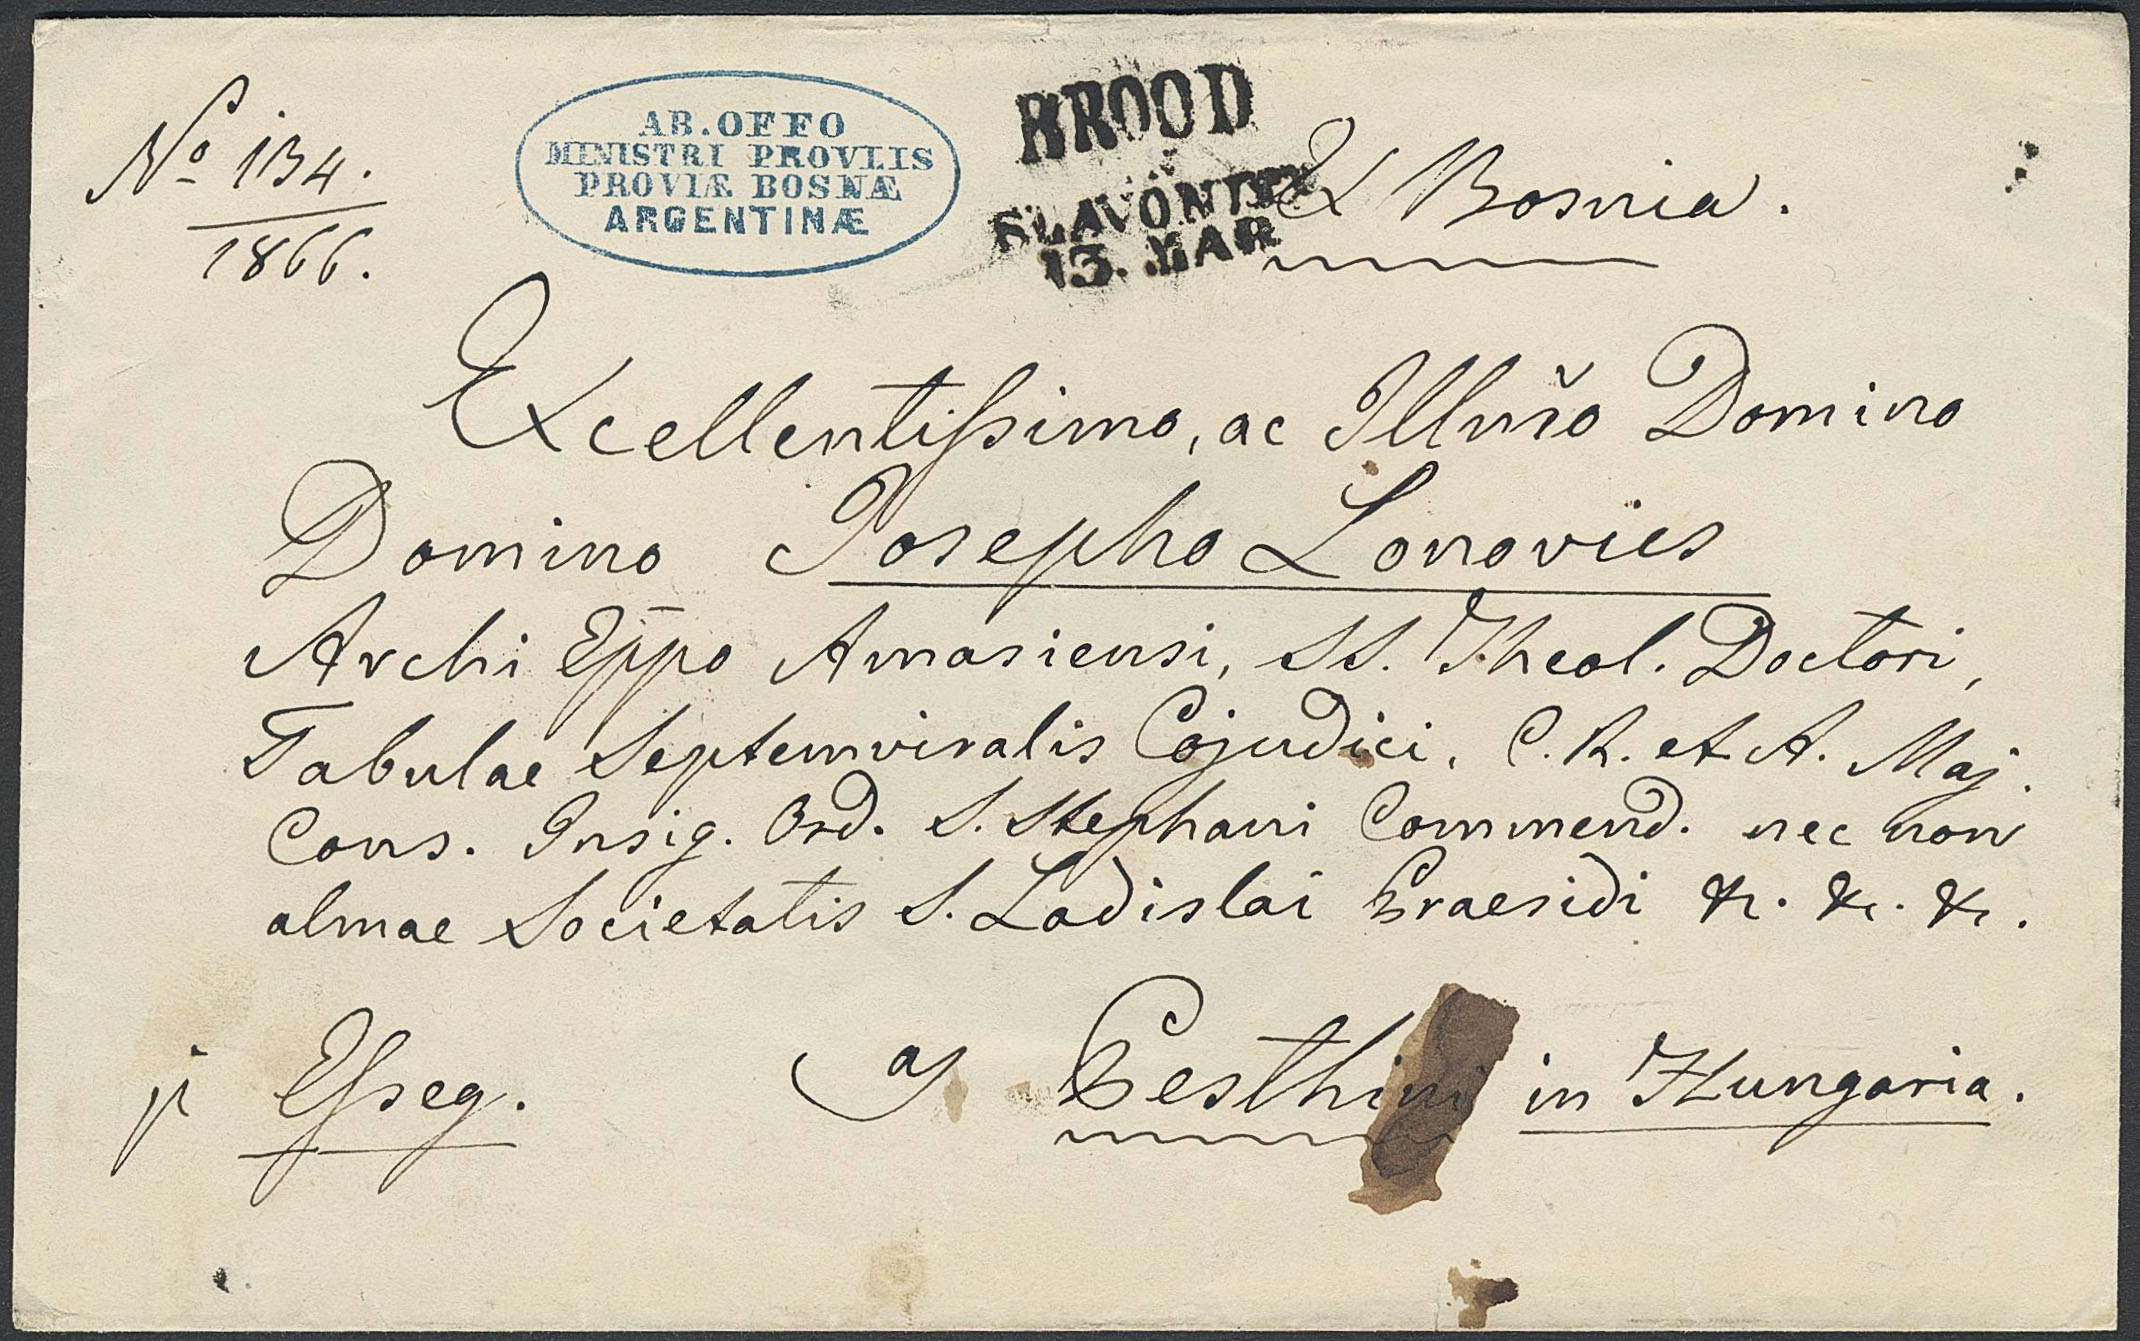 No 134.
1866.
AB. OFFO
MINISTRI PROVLIS
PROVIÆ BOSNÆ
ARGENTINÆ
BROOD
SLAVONIEN
13. MAR
Ex Bosnia.
Excellentissimo, ac Illmšo Domino
Domino Josepho Lonovics
Archi Eppo Amasiensi, SS. Theol. Doctori,
Tabulae Septemviralis Cojudici, C. R. et A. Maj.
Cons. Insig. Ord. S. Stephani Commend. nec non
almae Societatis S. Ladislai Praesidi &c. &c. &c.
p Esseg.
a Pesthini in Hungaria.